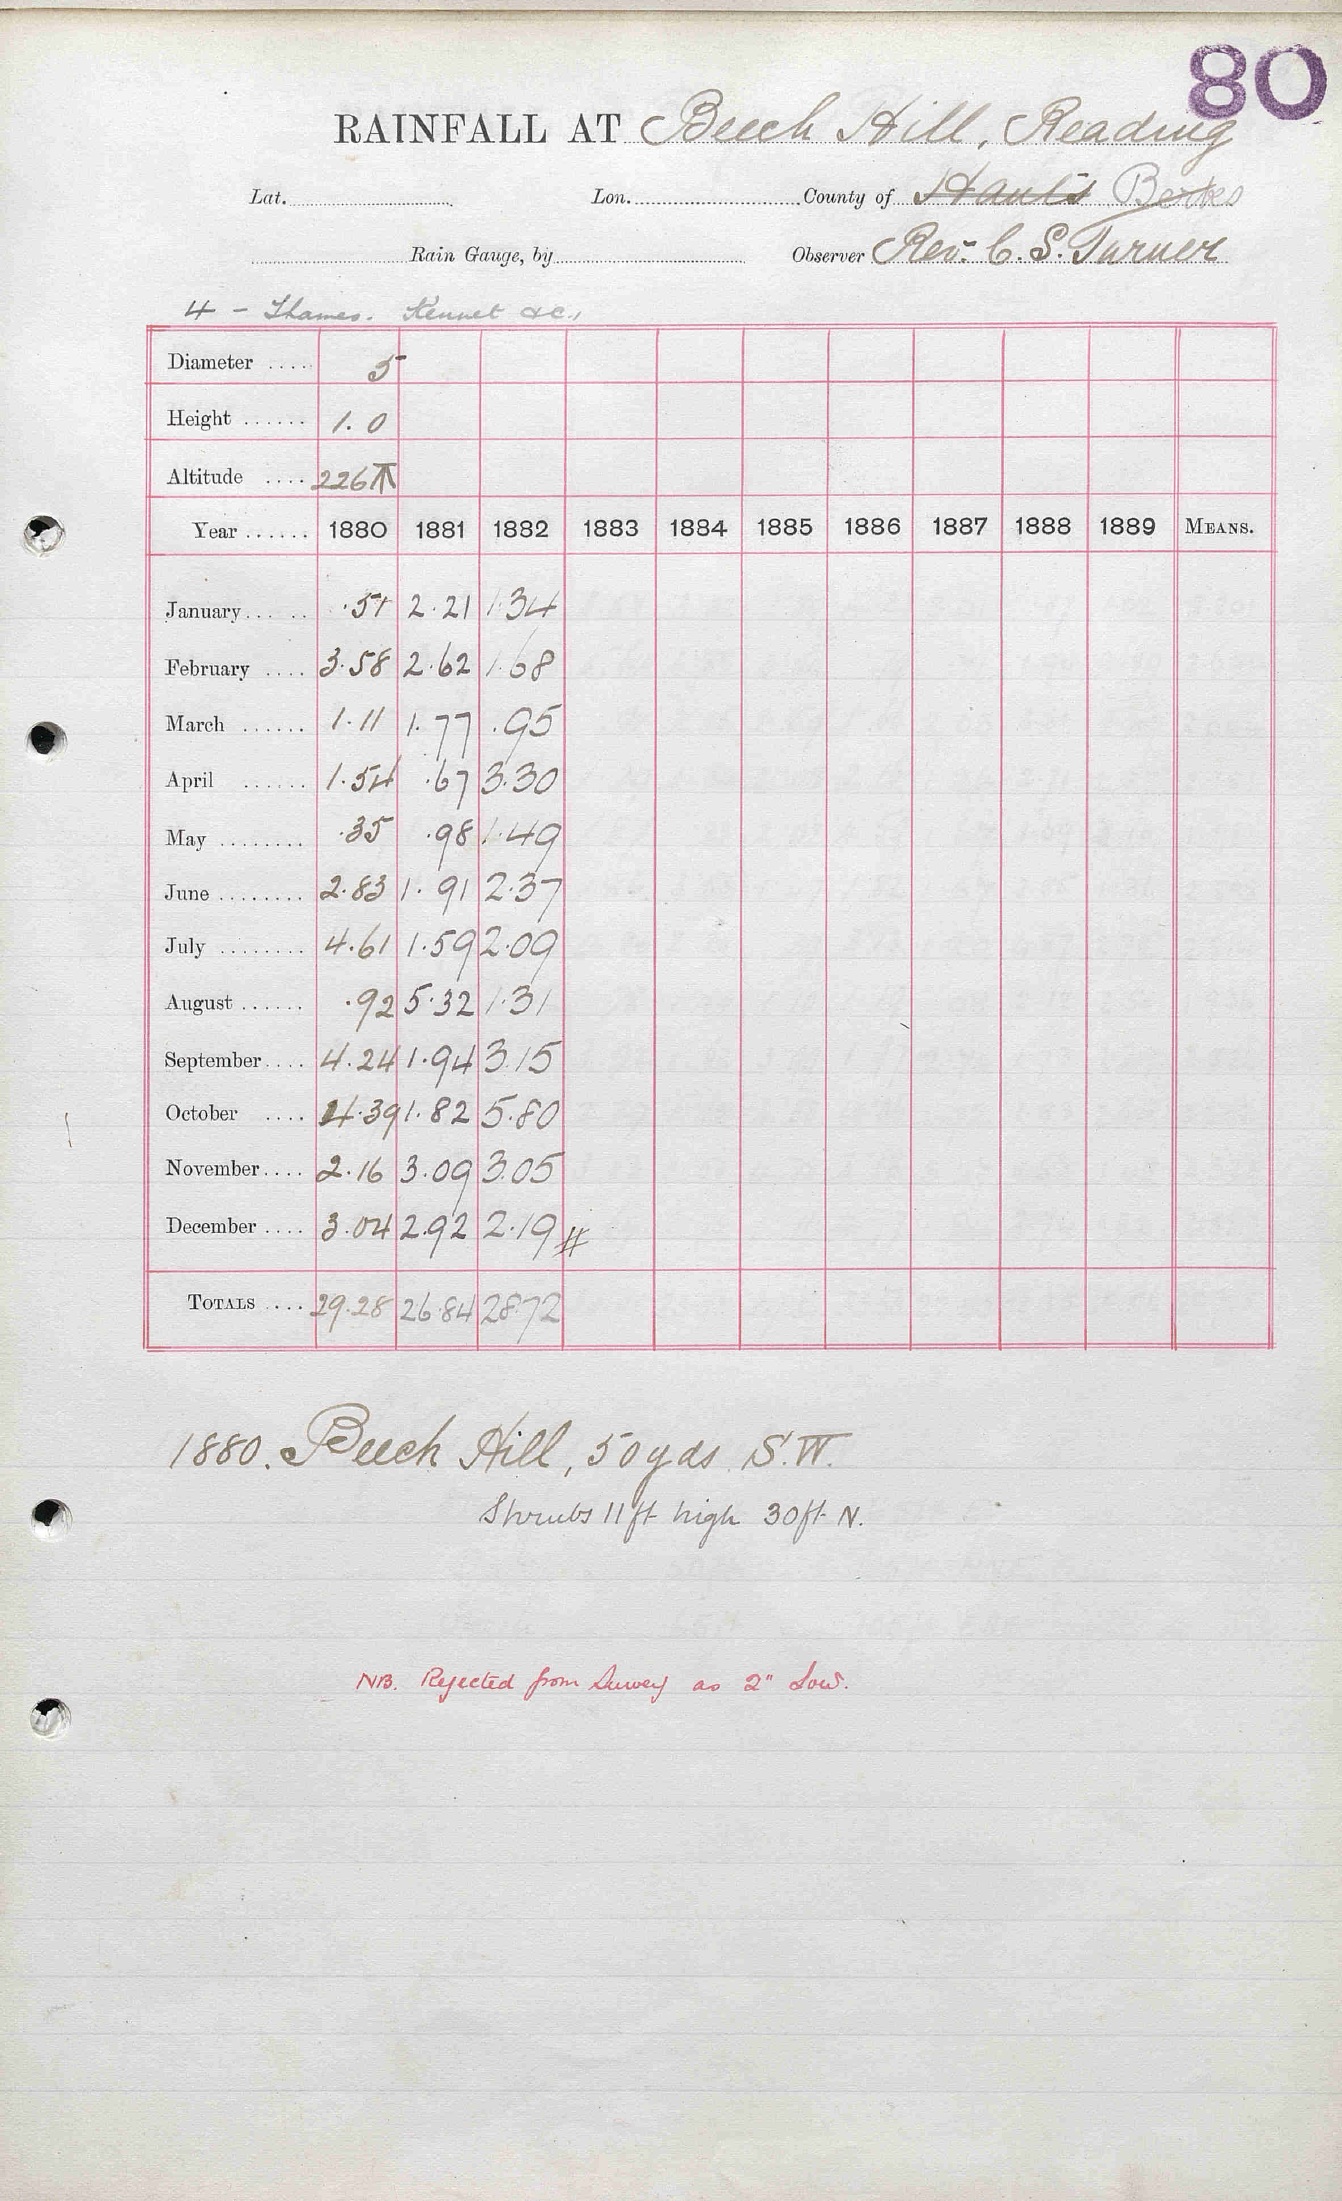 80
RAINFALL AT Beech Hill, Reading
Lat. Lon. County of Hants Berks
Rain Gauge, by Observer Rev. C. S. Turner
4 - Thames. Kennet &c.,
Diameter .... 5
Height ...... 1.0
Altitude .... 226
Year ...... 1880 1881 1882 1883 1884 1885 1886 1887 1888 1889 MEANS.
January ..... .51 2.21 1.34
February .... 3.58 2.62 1.68
March ...... 1.11 1.77 .95
April ...... 1.54 .67 3.30
May ........ .35 .98 1.49
June ........ 2.83 1.91 2.37
July ........ 4.61 1.59 2.09
August ...... .92 5.32 1.31
September .... 4.24 1.94 3.15
October .... 4.39 1.82 5.80
November .... 2.16 3.09 3.05
December .... 3.04 2.92 2.19 #
TOTALS .... 29.28 26.84 28.72
1880. Beech Hill, 50yds S.W.
Shrubs 11ft high 30ft N.
NB. Rejected from Survey as 2" Low.